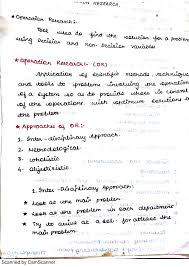 RESEARCH
* Operation Research:-
Tool used to find the solution for a problem
using Decision and non-Decision variable
* Operation Research:- (OR)
Application of scientific methods, techniques
and tools to problems involving the operation
of a system so as to provide those in control
of the operations with optimum solutions to
the problem
* Approaches of OR:-
1. Inter-disciplinary Approach
2. Methodological
3. Wholistic
4. Objectivistic
1. Inter-disciplinary Approach:
* Look at the main problem
* Look at the problem in each department
* Try to give at a set: for assess the
main problem.
Scanned by CamScanner